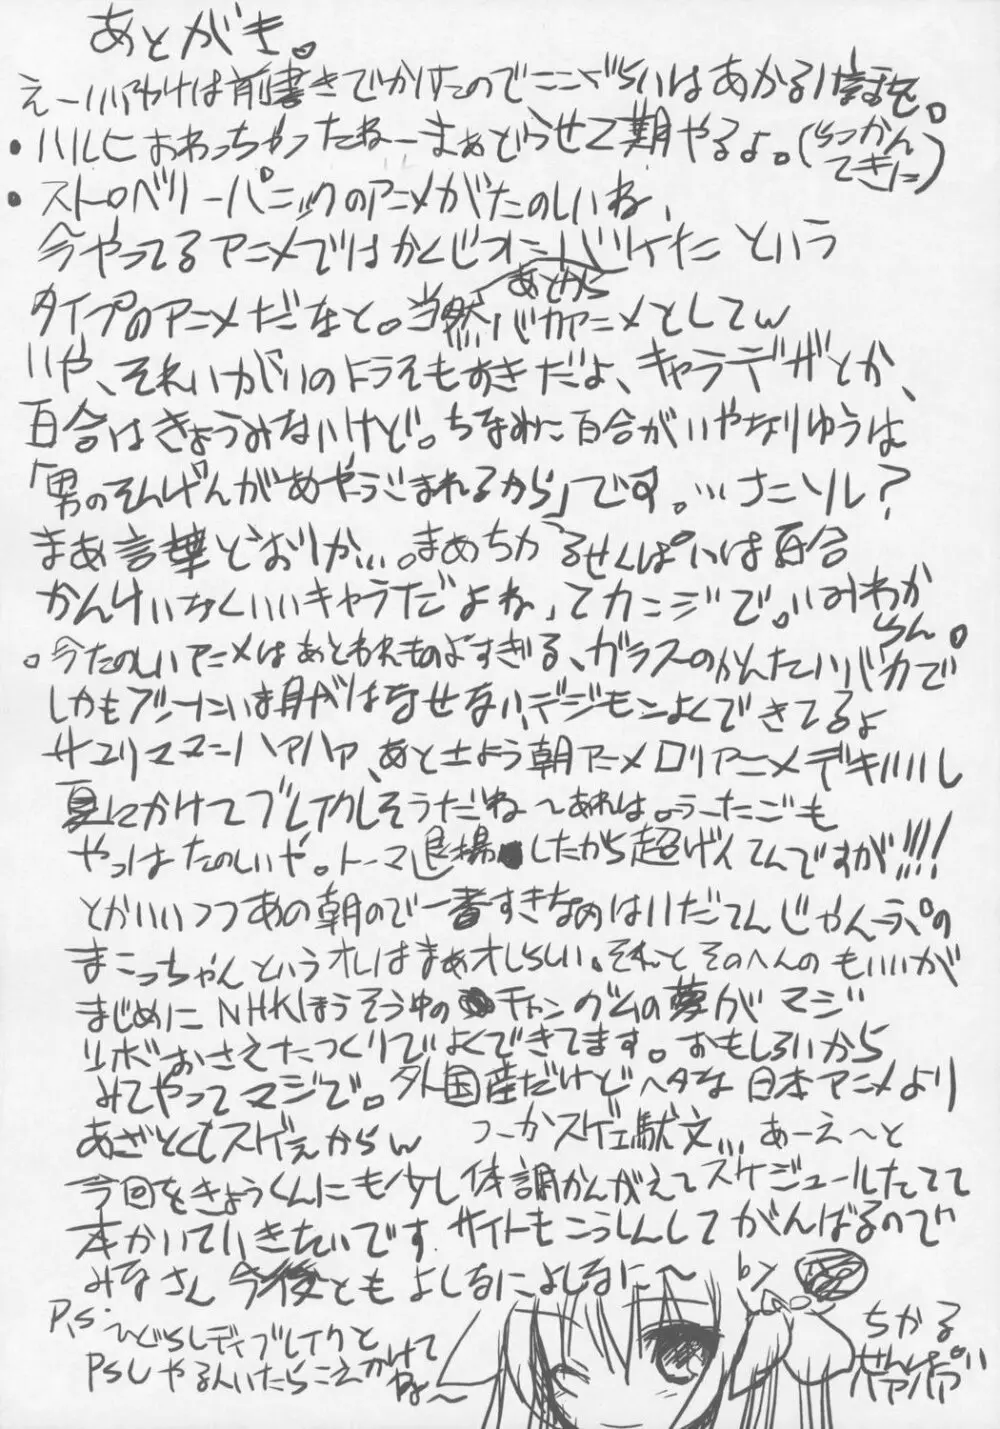 あとがき。
えーいいわけは前書きでかけたのでここぐらいはあかるい話を。
・ハルヒおわっちゃったねーまぁどうせ2期やるよ。(らっかんてきに)
・ストロベリーパニックのアニメがたのしいね、
今やってるアニメではかくじつにバケたという
タイプのアニメだなと。当然あとからバカアニメとしてw
いや、それいがいのトラえもすきだよ、キャラデザとか、
百合はきょうみないけど。ちなみに百合がいやなりゆうは
「男のそんげんがあやうごまれるから」です。…なにソレ?
まあ言葉どおりか…。まあちかるせんぱいは百合
かんけいなくいいキャラだよね、てカンジで。いみわからん。
。今たのしいアニメはあとわれものよすぎる、ガラスのかんたいバカで
しかもブソーにいま身がはなせない、デジモンよくできてるよ
サユリママンハァハァ、あと土よう朝アニメロリアニメデキいいし
夏にかけてブレイクしそうだね〜あれは。うーたごも
やっぱたのしいや。トーマ退場したから超げんてんですが!!!!
とかいいつつあの朝ので一番すきなのはいだてんじゃんぷの
まこっちゃんというオレはまぁオレらしい。それとそのへんのもいいが
まじめにNHKほうそう中のチャングムの夢がマジ
リボおさえたつくりでよくできてます。おもしろいから
みてやってマジで。外国産だけどヘタな日本アニメより
あざとくもスゲェからw つーかスゲェ駄文…あーえ〜と
今回をきょうくんにも少し体調かんがえてスケジュールたてて
本かいていきたいです サイトもこうしんしてがんばるので
みなさん今後ともよしなによしなに〜
P.S. ひぐらしディブレイクと
PSUやる人いたらこえかけてね〜
ちかる
せんぱい
ハァハァ